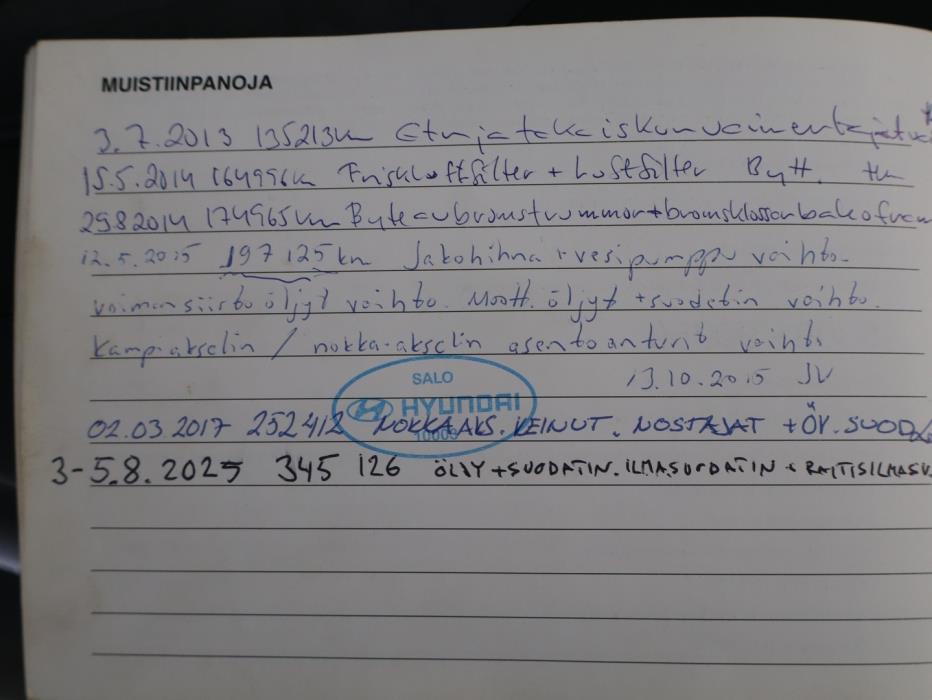 MUISTIINPANOJA
3.7.2013 135213km Etu ja taka iskunvaimentajat
15.5.2014 164996km Friskluftfilter + Luftfilter Bytt.
29.8 2014 174965km Byte av bromstrummor + bromsklossar bak o fram
12.5.2015 197125 km Jakohihna + vesipumppu vaihto.
voimansiirto öljyt vaihto. Moott. öljyt + suodatin vaihto.
Kampiakselin / nokka-akselin asentoanturit vaihto
13.10.2015 JV
SALO
HYUNDAI
02.03.2017 252412 NOKKAAKS. KEINUT. NOSTAJAT + ÖY. SUOD.
3-5.8.2025 345 126 ÖLJY + SUODATIN. ILMASUODATIN + RAITISILMASU